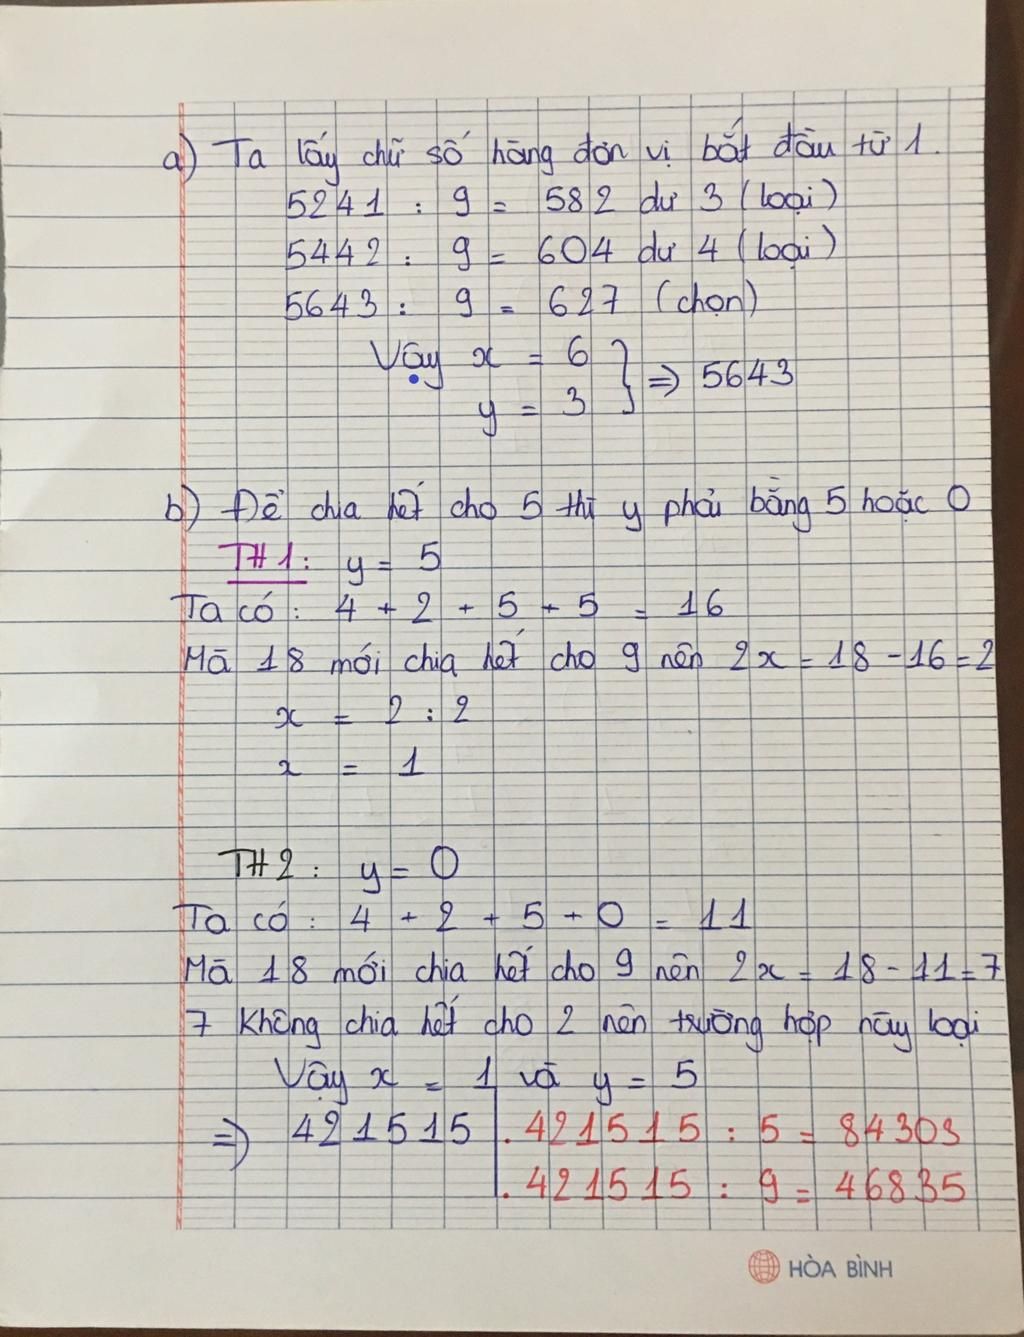 a) Ta lấy chữ số hàng đơn vị bắt đầu từ 1.
5241 : 9 = 582 dư 3 (loại)
5442 : 9 = 604 dư 4 (loại)
5643 : 9 = 627 (chọn)
Vậy x = 6
y = 3 } => 5643
b) Để chia hết cho 5 thì y phải bằng 5 hoặc 0
TH1: y = 5
Ta có: 4 + 2 + 5 + 5 = 16
Mà 18 mới chia hết cho 9 nên 2x = 18 - 16 = 2
x = 2 : 2
x = 1
TH2 : y = 0
Ta có : 4 + 2 + 5 + 0 = 11
Mà 18 mới chia hết cho 9 nên 2x = 18 - 11 = 7
7 không chia hết cho 2 nên trường hợp này loại
Vậy x = 1 và y = 5
=> 421515 . 421515 : 5 = 84303
. 421515 : 9 = 46835
HÒA BÌNH